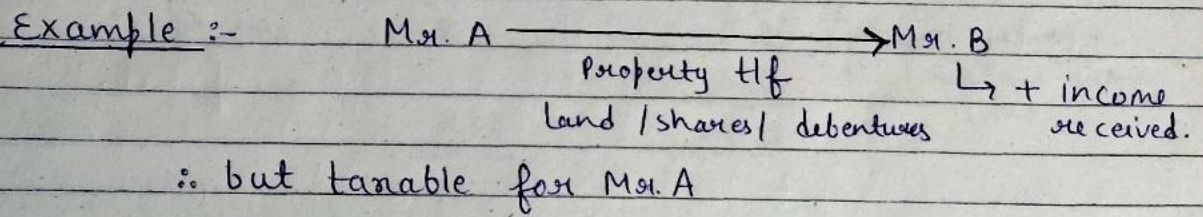 Example :- Mr. A → Mr. B
Property tlf ↳ + income
land / shares / debentures received.
∴ but taxable for Mr. A